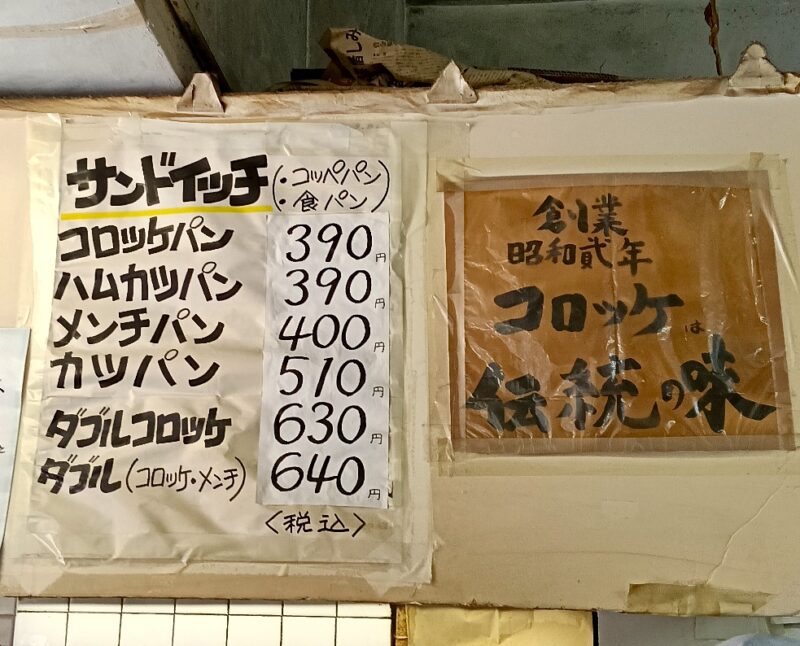 サンドイッチ
(・コッペパン
・食パン)
コロッケパン 390円
ハムカツパン 390円
メンチパン 400円
カツパン 510円
ダブルコロッケ 630円
ダブル(コロッケ・メンチ) 640円
〈税込〉
創業
昭和貳年
コロッケは
伝統の味